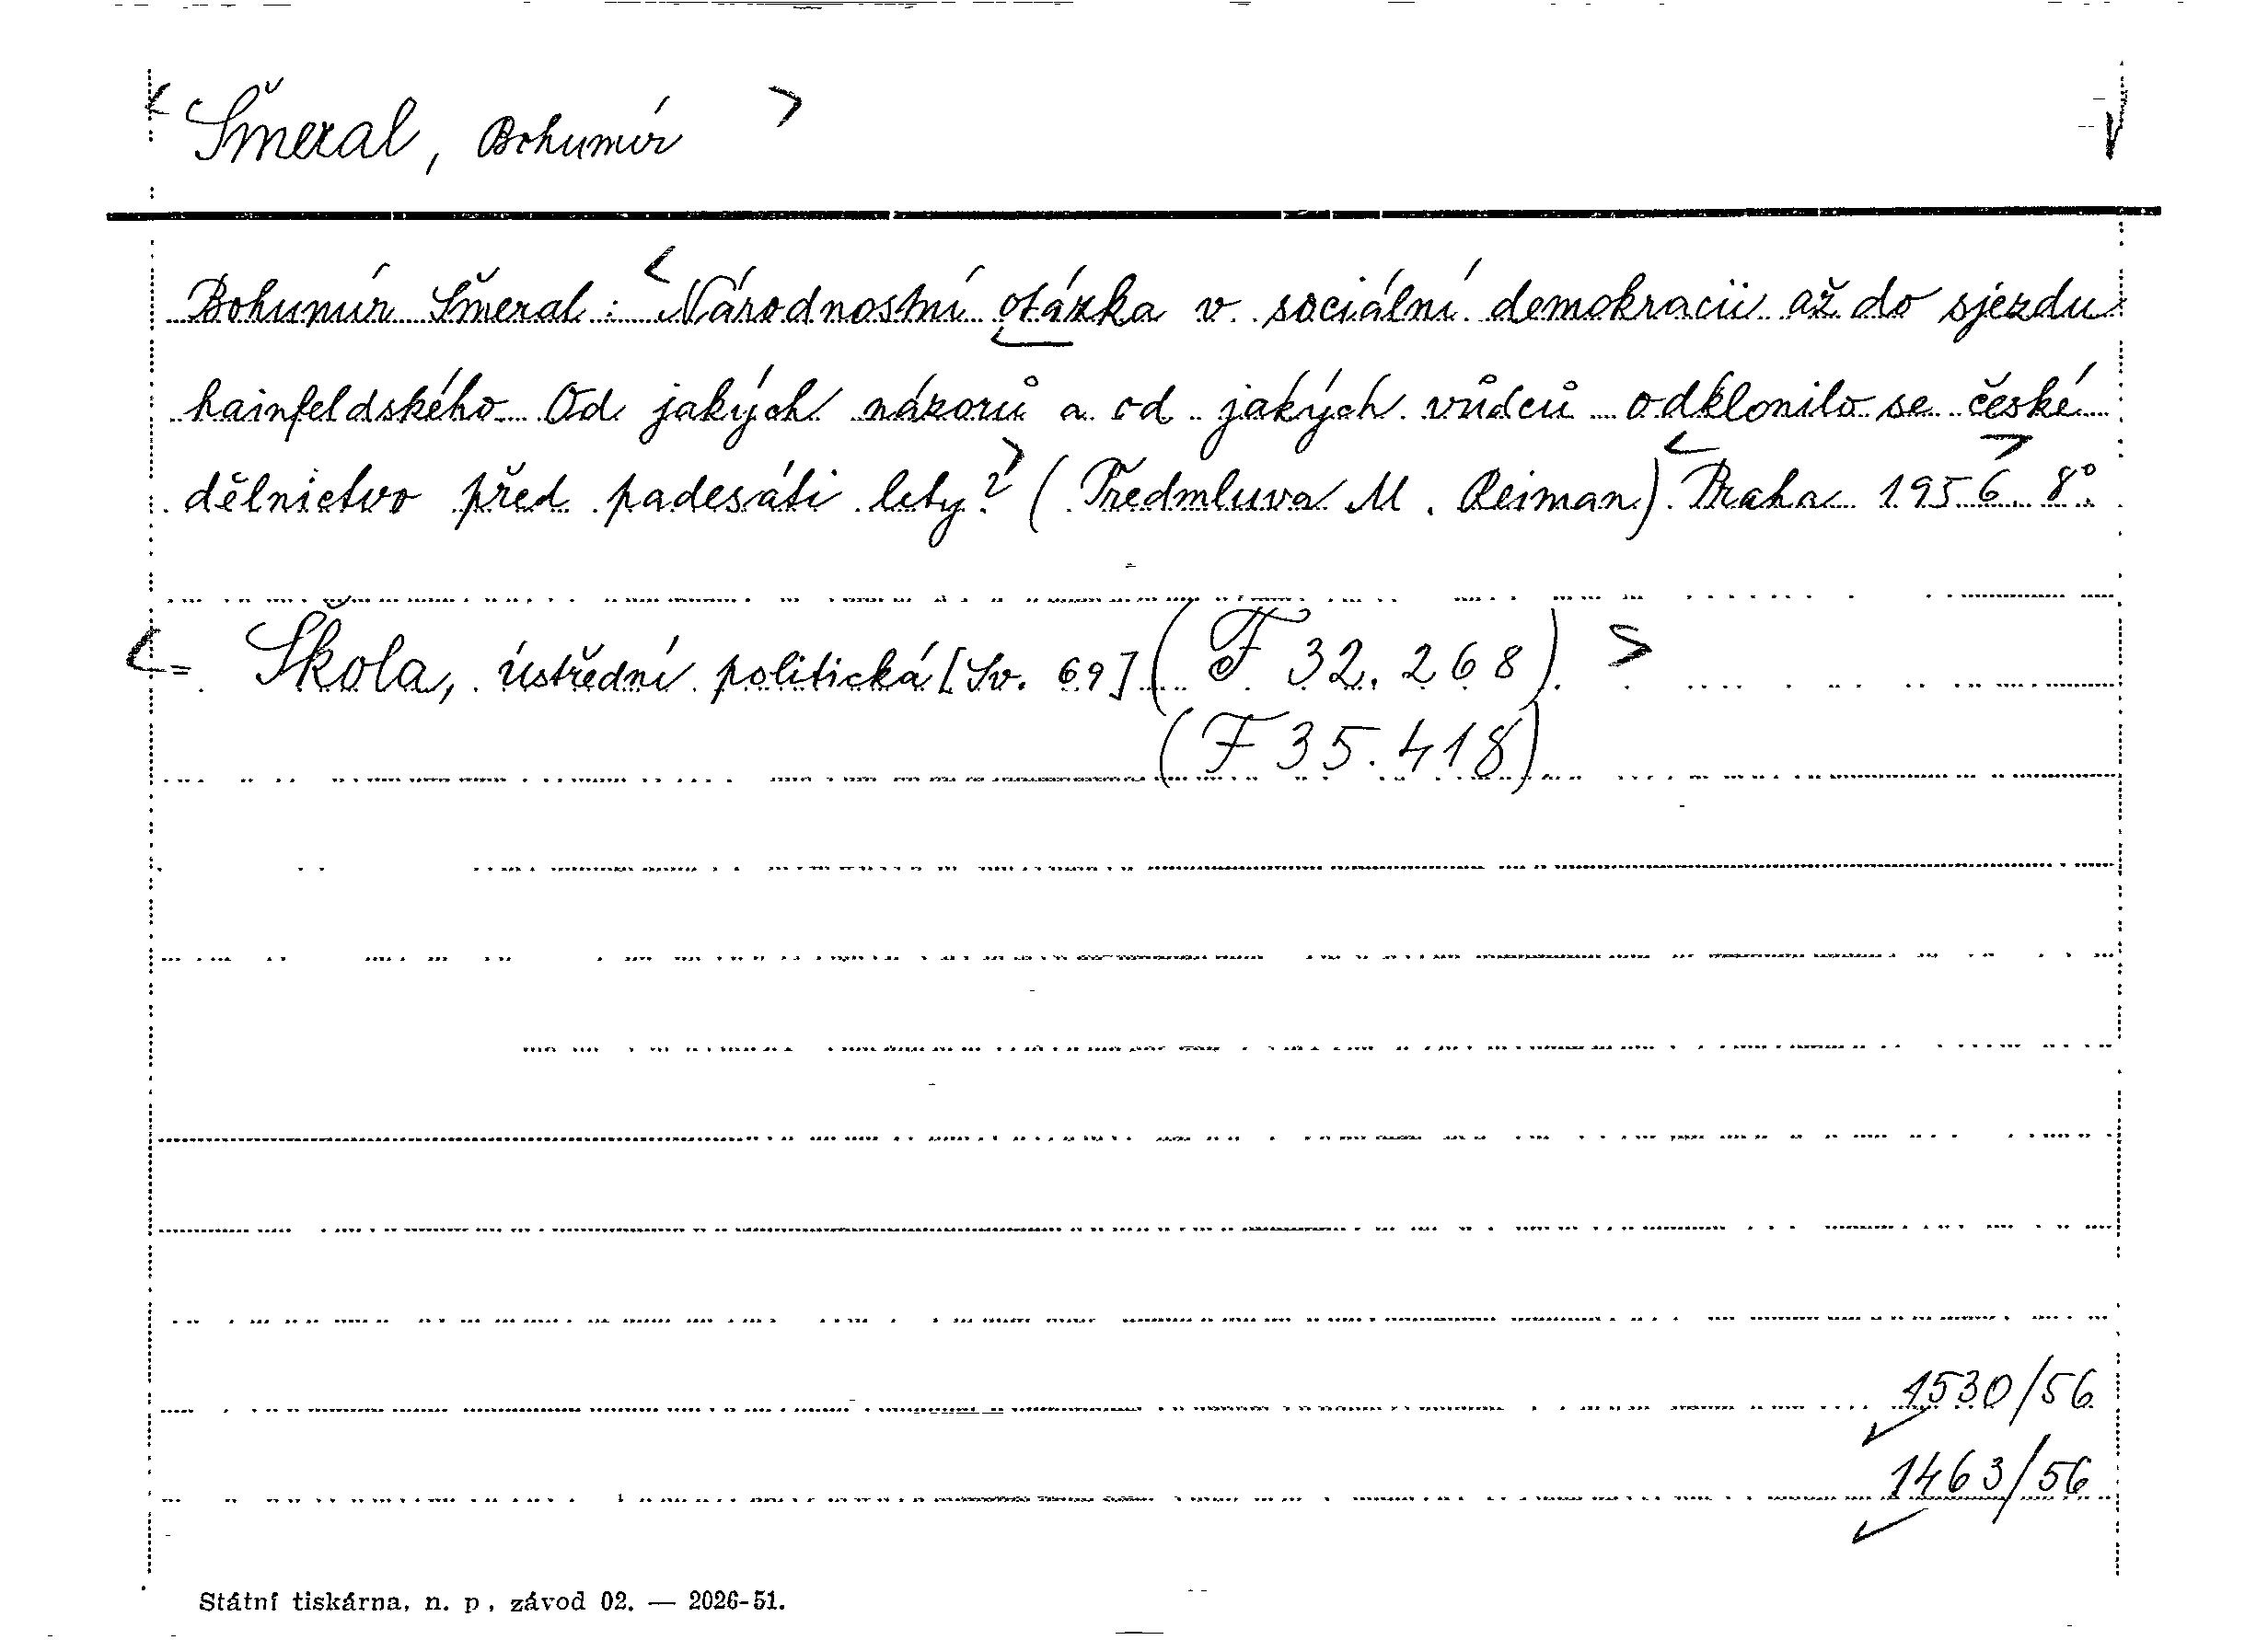 < Šmeral, Bohumír >
Bohumír Šmeral: < Národnostní otázka v sociální demokracii až do sjezdu
hainfeldského. Od jakých názorů a od jakých vůdců odklonilo se české
dělnictvo před padesáti lety? > (Předmluva M. Reiman) < Praha 1956 > 8°.
< = Škola, ústřední politická [Sv. 69] (F 32.268) >
(F 35.418)
1530/56
1463/56
Státní tiskárna, n. p., závod 02. — 2026-51.